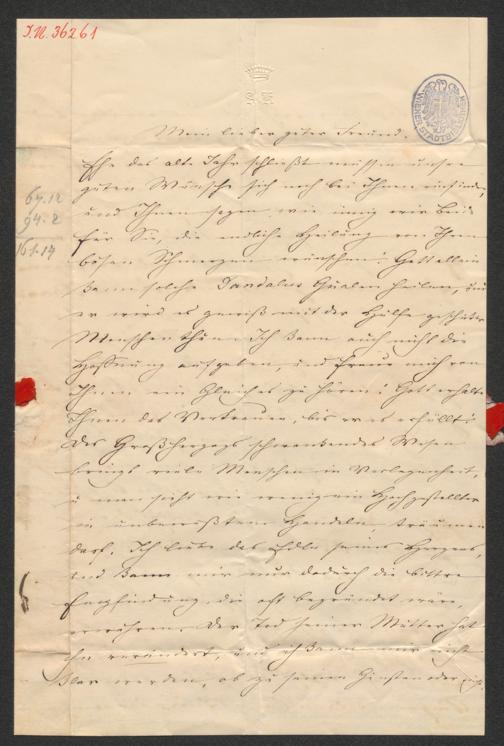 I.N. 36261
WIENER STADTBIBLIOTHEK
Mein lieber guter Freund.
Ehe das alte Jahr schließt müssen unsere
guten Wünsche sich noch bei Ihnen einfinden,
und Ihnen sagen wie innig wir beide
für Sie, die endliche Heilung von Ihren
bösen Schmerzen wünschen! Gott allein
kann solche Tandalus Qualen heilen, und
er wird es gewiß mit der Hülfe geschickter
Menschen thun. Ich kann auch nicht die
Hoffnung aufgeben, und freue mich von
Ihnen ein Gleiches zu hören! Gott erhalte
Ihnen das Vertrauen, bis er es erfüllt!
Des Großherzogs schwankendes Wesen
bringt viele Menschen in Verlegenheit,
u man sieht wie wenig ein Hochgestellter
in unbewußtem Handeln, träumen
darf. Ich liebe das Edle seines Herzens,
und kann mir nur dadurch die bittre
Empfindung, die oft begründet wäre,
erwehren. Der Tod seiner Mutter hat
ihn verändert, und ich kann mir nicht
klar werden, ob zu seinen Gunsten oder nicht.
67.12
94.2